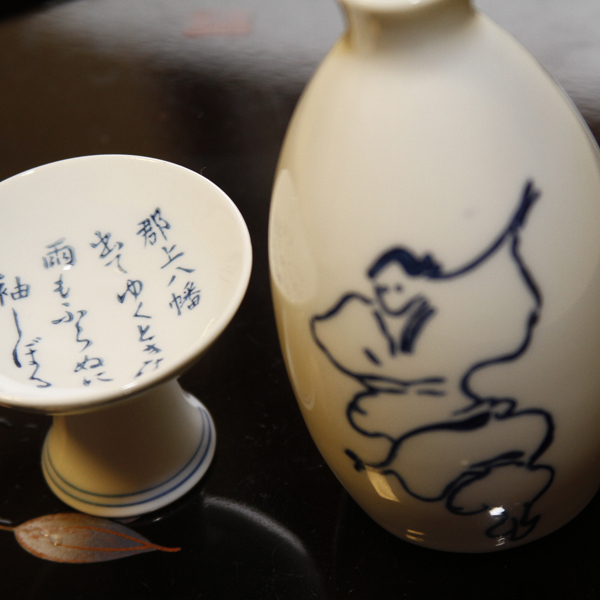 郡上八幡
出てゆくときは
雨もふらぬに
袖しぼる